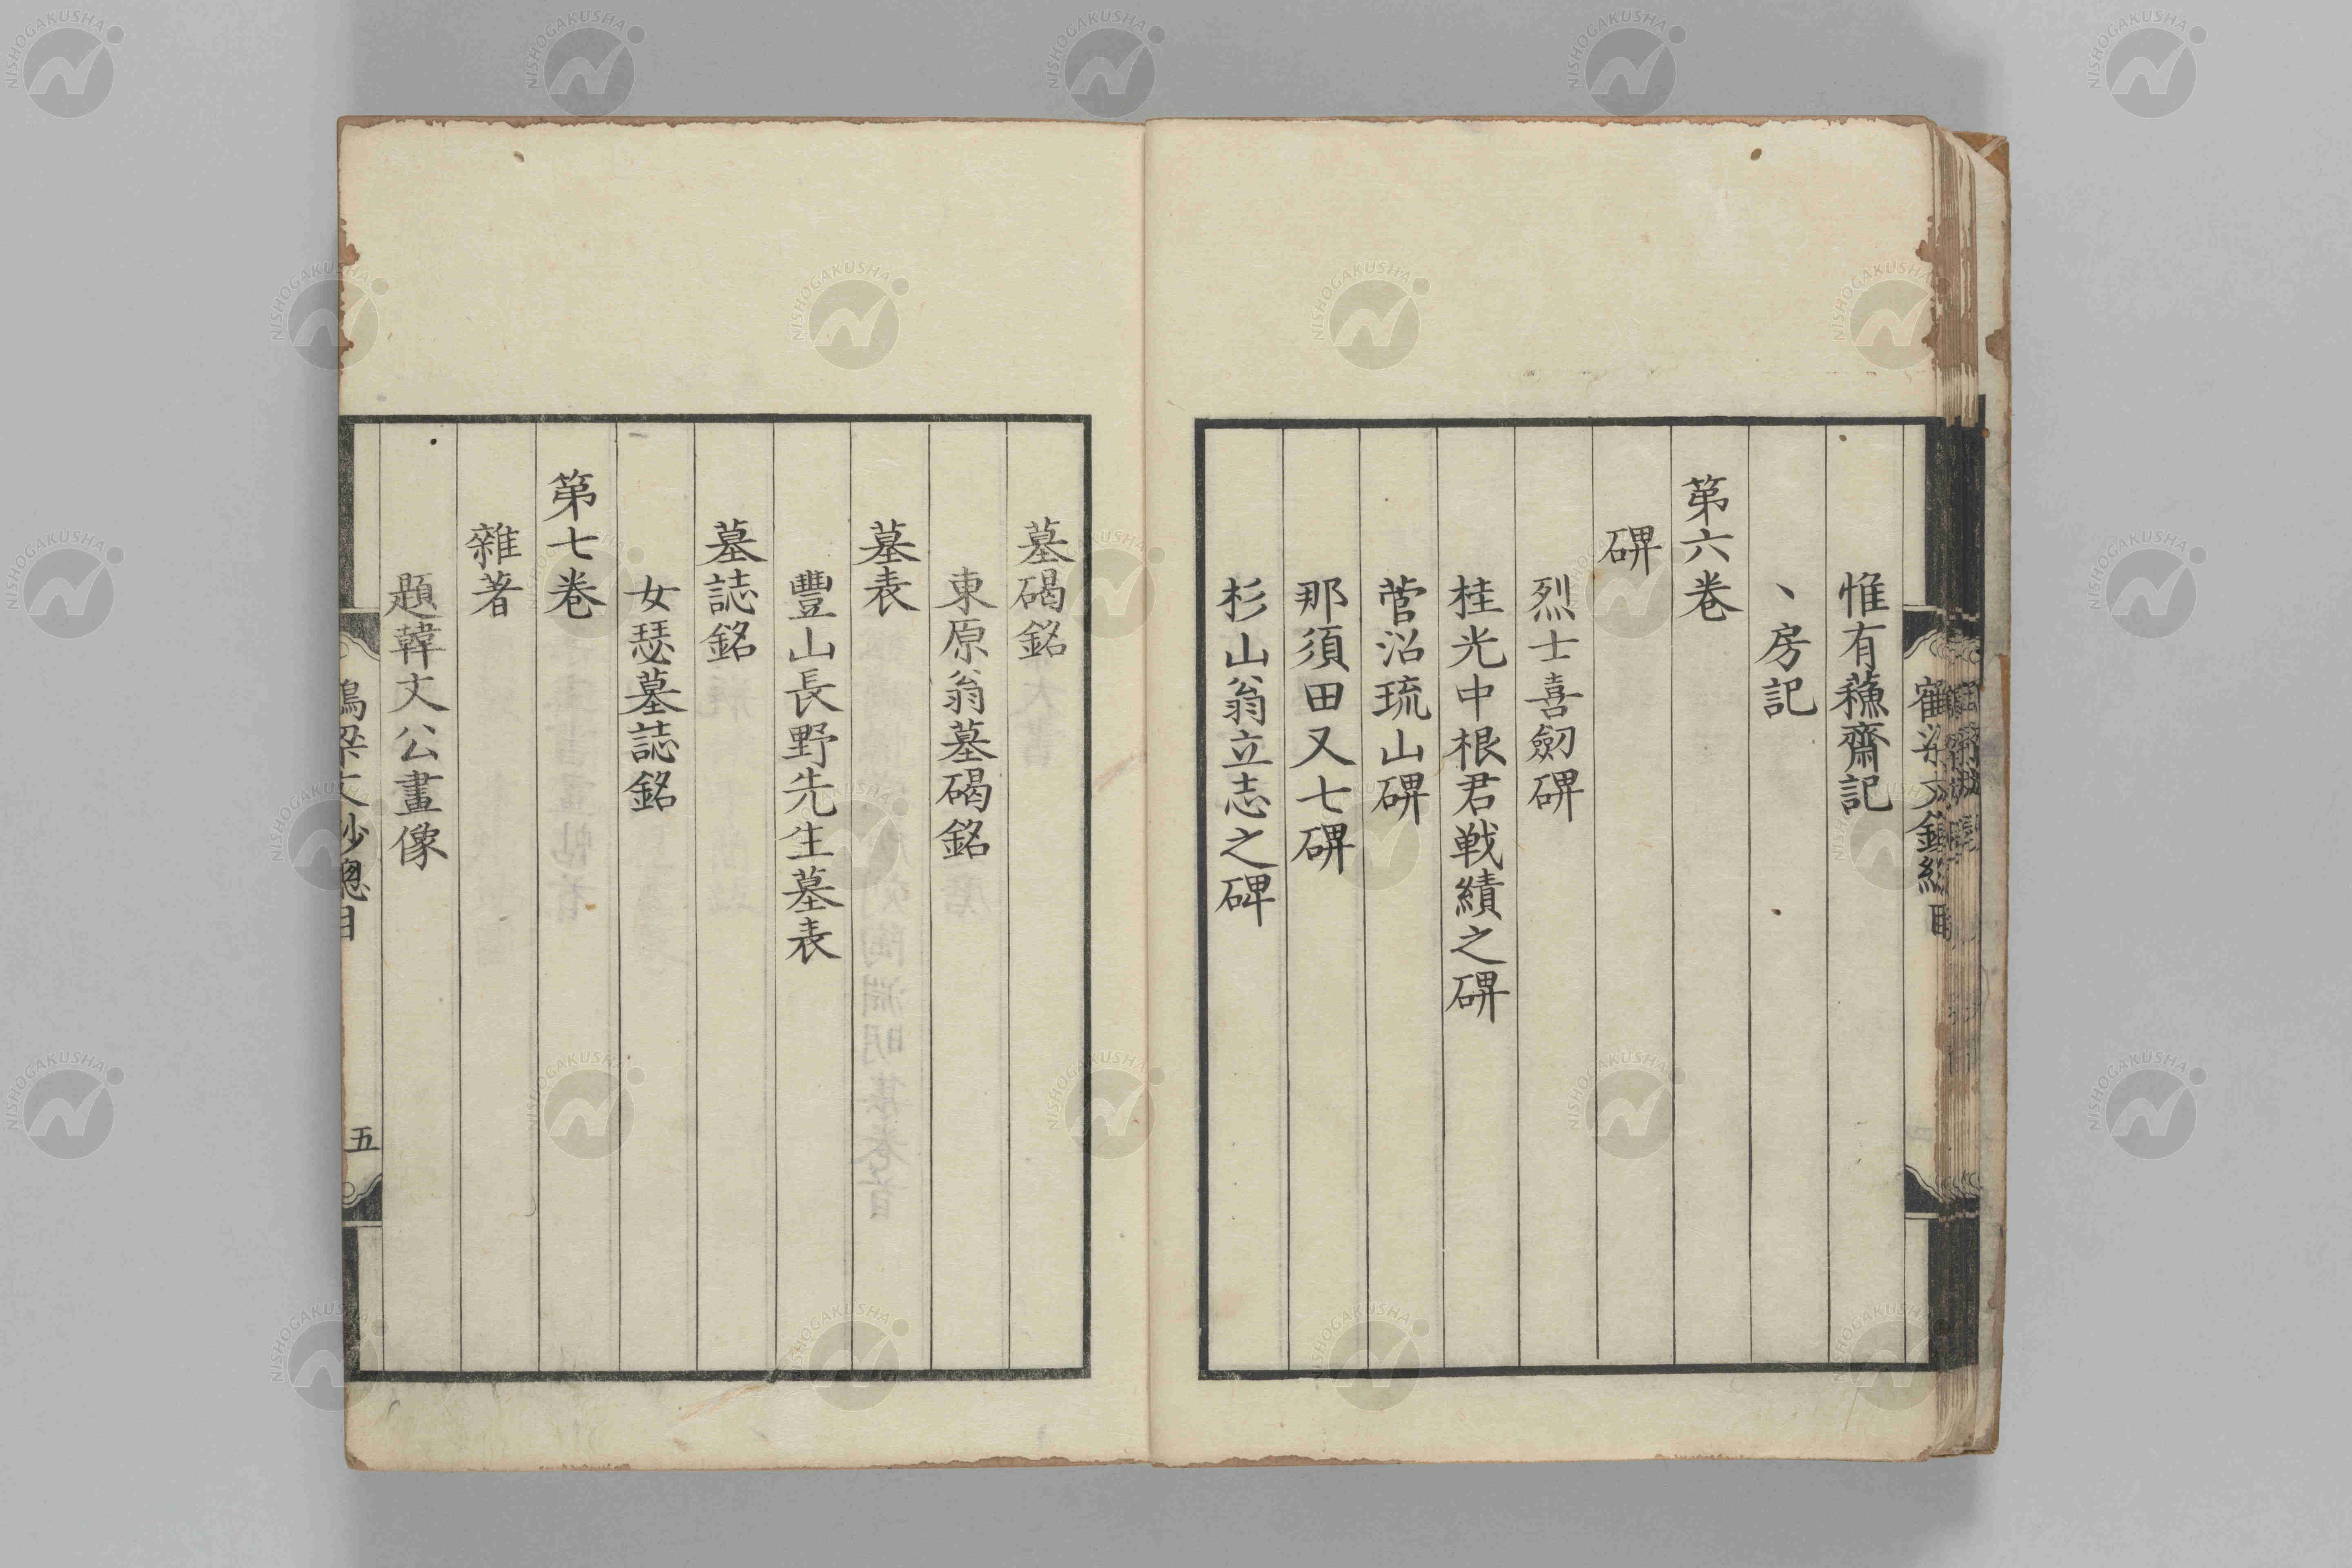 惟有蘓齋記
、房記
第六卷
碑
烈士喜劒碑
桂光中根君戦績之碑
菅沼琉山碑
那須田又七碑
杉山翁立志之碑
墓碣銘
東原翁墓碣銘
墓表
豐山長野先生墓表
墓誌銘
女瑟墓誌銘
第七卷
雜著
題韓文公畫像
鶴梁文鈔總目
五
NISHOGAKUSHA